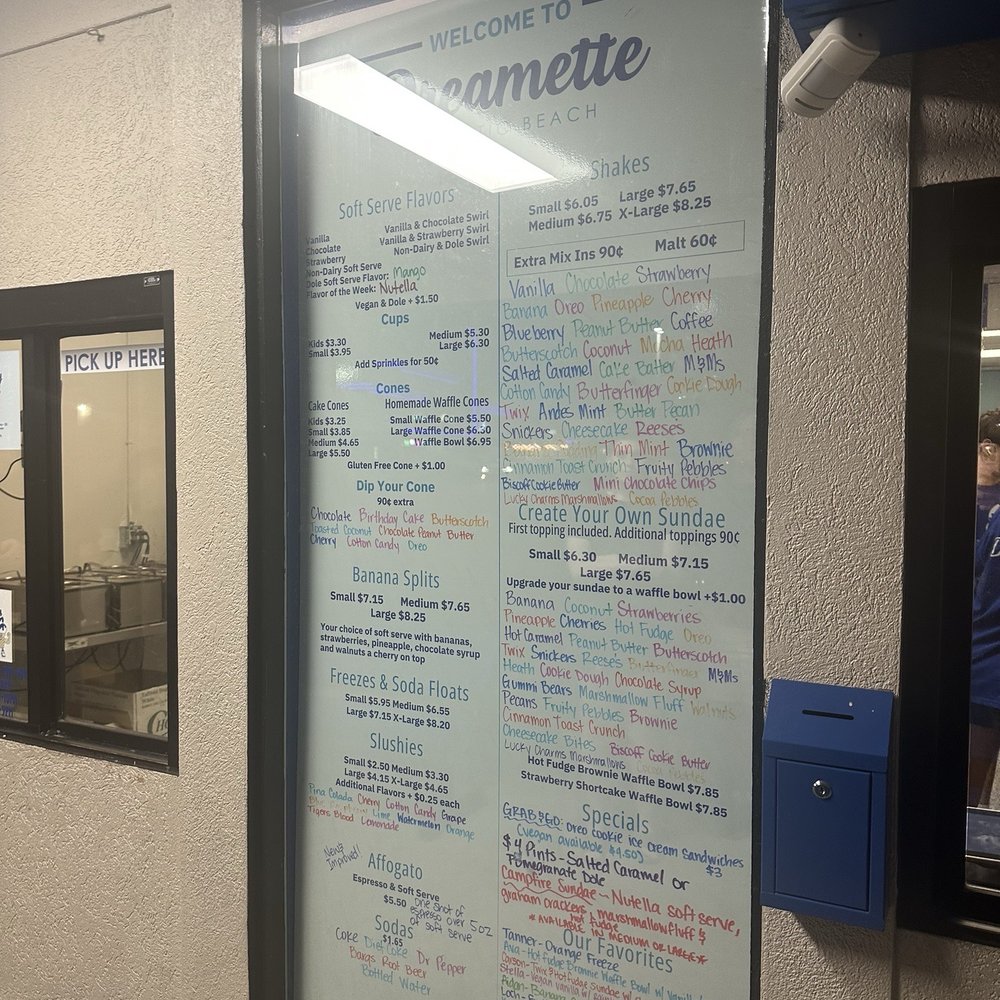 WELCOME TO
Creamette
BEACH
Soft Serve Flavors
Vanilla
Chocolate
Strawberry
Non-Dairy Soft Serve
Vanilla & Chocolate Swirl
Vanilla & Strawberry Swirl
Non-Dairy & Dole Swirl
Dole Soft Serve Flavor: Mango
Flavor of the Week: Nutella
Vegan & Dole + $1.50
Cups
Kids $3.30
Small $3.95
Medium $5.30
Large $6.30
Add Sprinkles for 50¢
Cones
Cake Cones
Kids $3.25
Small $3.85
Medium $4.65
Large $5.50
Homemade Waffle Cones
Small Waffle Cone $5.50
Large Waffle Cone $6.30
Waffle Bowl $6.95
Gluten Free Cone + $1.00
Dip Your Cone
90¢ extra
Chocolate Birthday Cake Butterscotch
Toasted Coconut Chocolate Peanut Butter
Cherry Cotton Candy Oreo
Banana Splits
Small $7.15 Medium $7.65
Large $8.25
Your choice of soft serve with bananas,
strawberries, pineapple, chocolate syrup
and walnuts a cherry on top
Freezes & Soda Floats
Small $5.95 Medium $6.55
Large $7.15 X-Large $8.20
Slushies
Small $2.50 Medium $3.30
Large $4.15 X-Large $4.65
Additional Flavors + $0.25 each
Pina Colada Cherry Cotton Candy Grape
Lime Watermelon Orange
Tigers Blood Lemonade
New & Improved!
Affogato
Espresso & Soft Serve
$5.50 one shot of
espresso over 5oz
of soft serve
Sodas
$1.65
Coke Diet Coke Dr Pepper
Barqs Root Beer
Bottled Water
Shakes
Small $6.05 Large $7.65
Medium $6.75 X-Large $8.25
Extra Mix Ins 90¢ Malt 60¢
Vanilla Chocolate Strawberry
Banana Oreo Pineapple Cherry
Blueberry Peanut Butter Coffee
Butterscotch Coconut Mocha Heath
Salted Caramel Cake Batter M&Ms
Cotton Candy Butterfinger Cookie Dough
Twix Andes Mint Butter Pecan
Snickers Cheesecake Reeses
Thin Mint Brownie
Cinnamon Toast Crunch Fruity Pebbles
Biscoff Cookie Butter Mini Chocolate Chips
Lucky Charms Marshmallows Cocoa Pebbles
Create Your Own Sundae
First topping included. Additional toppings 90¢
Small $6.30 Medium $7.15
Large $7.65
Upgrade your sundae to a waffle bowl +$1.00
Banana Coconut Strawberries
Pineapple Cherries Hot Fudge Oreo
Hot Caramel Peanut Butter Butterscotch
Twix Snickers Reeses Butterfinger M&Ms
Heath Cookie Dough Chocolate Syrup
Gummi Bears Marshmallow Fluff Walnuts
Pecans Fruity Pebbles Brownie
Cinnamon Toast Crunch
Cheesecake Bites Biscoff Cookie Butter
Lucky Charms Marshmallows Cocoa Pebbles
Hot Fudge Brownie Waffle Bowl $7.85
Strawberry Shortcake Waffle Bowl $7.85
Specials
GRAB & GO: oreo cookie ice cream sandwiches
(vegan available $4.50) $3
$4 Pints - Salted Caramel or
Pomegranate Dole
Campfire Sundae - Nutella soft serve,
graham crackers, marshmallow fluff &
hot fudge
*AVAILABLE IN MEDIUM OR LARGE*
Our Favorites
Tanner - Orange Freeze
Ava - Hot Fudge Brownie Waffle Bowl w/ Vanilla
Carson - Twix & Hot fudge Sundae w/
Stella - Vegan vanilla w/
Aidan - Banana
PICK UP HERE